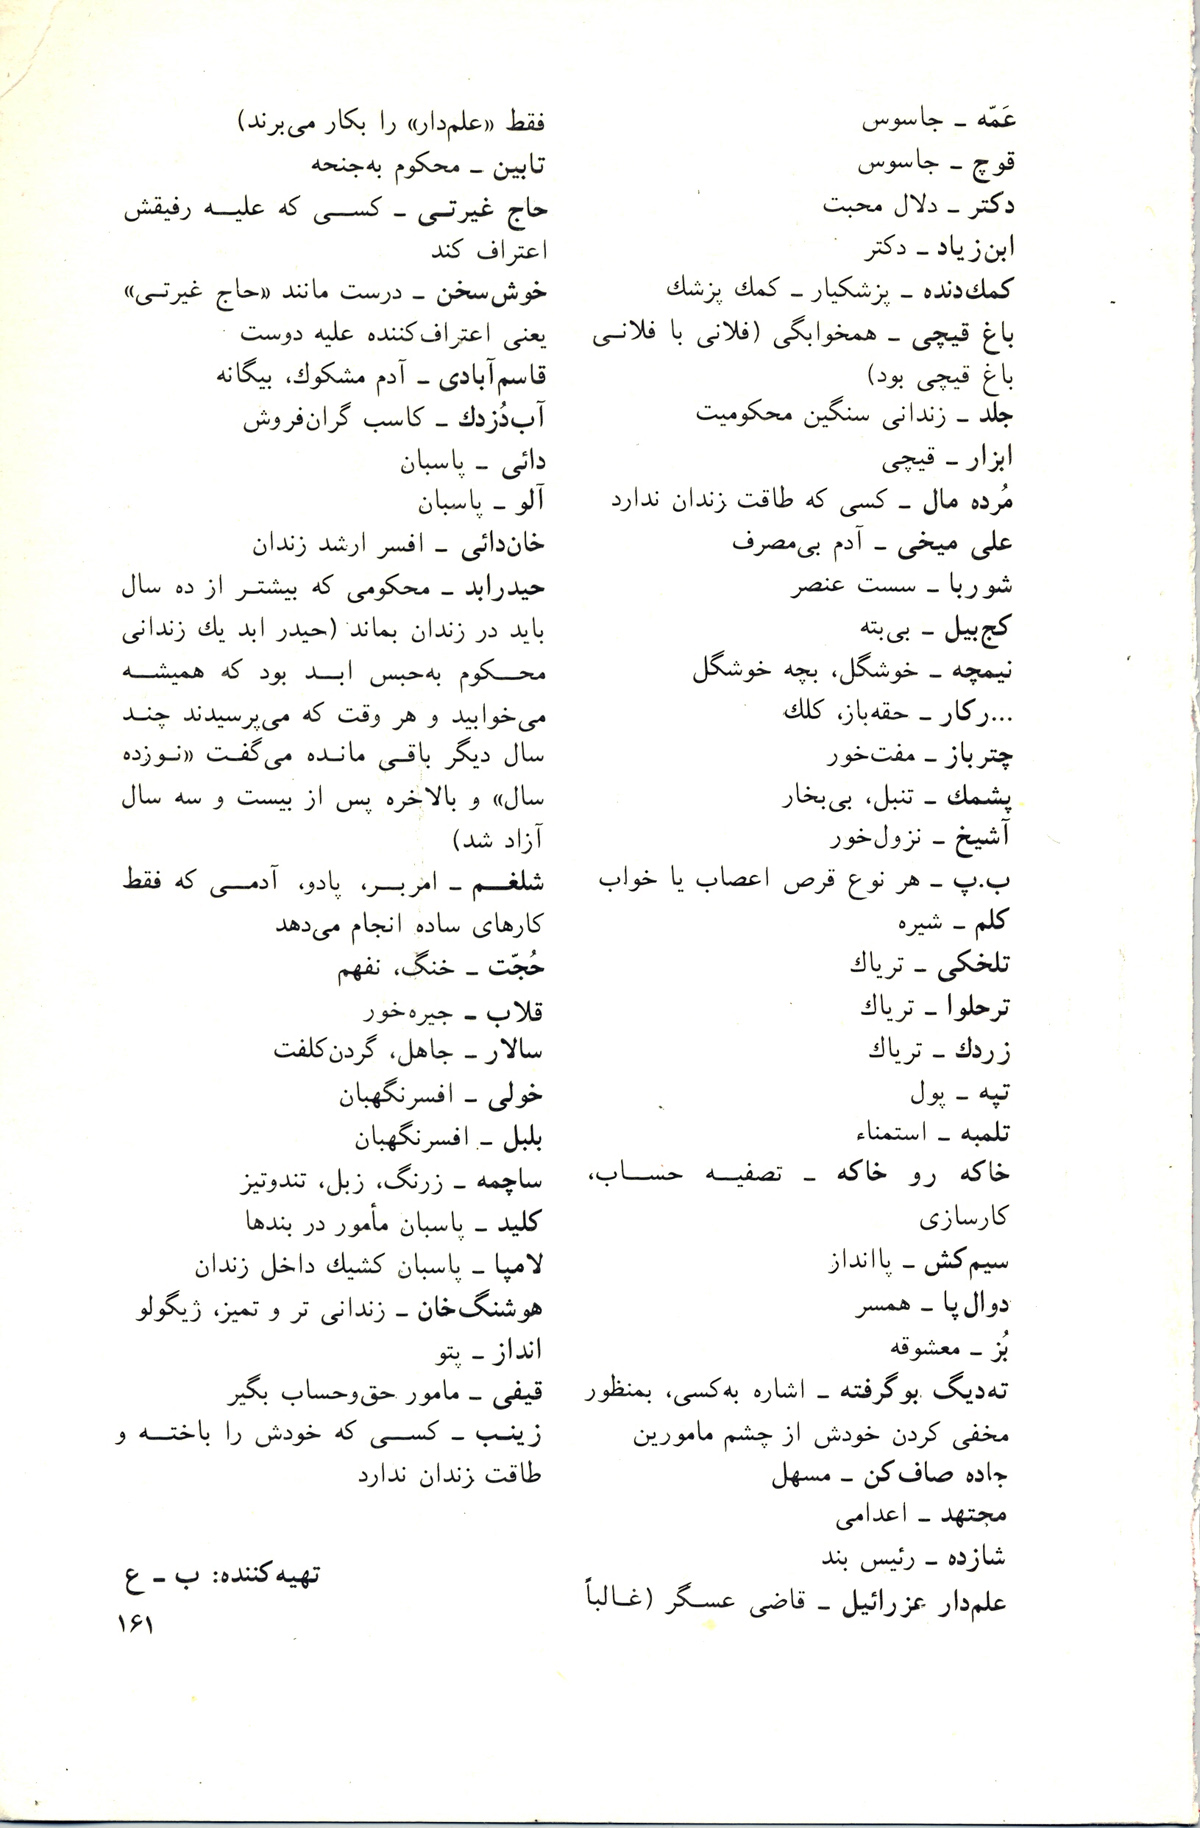 عَمّه ـ جاسوس
قوچ ـ جاسوس
دکتر ـ دلال محبت
ابن‌زیاد ـ دکتر
کمك‌دنده ـ پزشکیار ـ کمك پزشك
باغ قیچی ـ همخوابگی (فلانی با فلانی
باغ قیچی بود)
جلد ـ زندانی سنگین محکومیت
ابزار ـ قیچی
مُرده مال ـ کسی که طاقت زندان ندارد
علی میخی ـ آدم بی‌مصرف
شوربا ـ سست عنصر
کج‌بیل ـ بی‌بته
نیمچه ـ خوشگل، بچه خوشگل
...رکار ـ حقه‌باز، کلك
چترباز ـ مفت‌خور
پشمك ـ تنبل، بی‌بخار
آشیخ ـ نزول‌خور
ب.پ ـ هر نوع قرص اعصاب یا خواب
کلم ـ شیره
تلخکی ـ تریاك
ترحلوا ـ تریاك
زردك ـ تریاك
تپه ـ پول
تلمبه ـ استمناء
خاکه رو خاکه ـ تصفیه حساب،
کارسازی
سیم‌کش ـ پاانداز
دوال‌پا ـ همسر
بُز ـ معشوقه
ته‌دیگ بوگرفته ـ اشاره به‌کسی، بمنظور
مخفی کردن خودش از چشم مامورین
جاده صاف‌کن ـ مسهل
مجتهد ـ اعدامی
شازده ـ رئیس بند
علم‌دار عزرائیل ـ قاضی عسگر (غالباً
فقط «علم‌دار» را بکار می‌برند)
تابین ـ محکوم به‌جنحه
حاج غیرتی ـ کسی که علیه رفیقش
اعتراف کند
خوش‌سخن ـ درست مانند «حاج غیرتی»
یعنی اعتراف‌کننده علیه دوست
قاسم‌آبادی ـ آدم مشکوك، بیگانه
آب‌دُزدك ـ کاسب گران‌فروش
دائی ـ پاسبان
آلو ـ پاسبان
خان‌دائی ـ افسر ارشد زندان
حیدرابد ـ محکومی که بیشتر از ده سال
باید در زندان بماند (حیدر ابد یك زندانی
محکوم به‌حبس ابد بود که همیشه
می‌خوابید و هر وقت که می‌پرسیدند چند
سال دیگر باقی مانده می‌گفت «نوزده
سال» و بالاخره پس از بیست و سه سال
آزاد شد)
شلغم ـ امربر، پادو، آدمی که فقط
کارهای ساده انجام می‌دهد
حُجّت ـ خنگ، نفهم
قلاب ـ جیره‌خور
سالار ـ جاهل، گردن‌کلفت
خولی ـ افسرنگهبان
بلبل ـ افسرنگهبان
ساچمه ـ زرنگ، زبل، تندوتیز
کلید ـ پاسبان مأمور در بندها
لامپا ـ پاسبان کشیك داخل زندان
هوشنگ‌خان ـ زندانی تر و تمیز، ژیگولو
انداز ـ پتو
قیفی ـ مامور حق‌وحساب بگیر
زینب ـ کسی که خودش را باخته و
طاقت زندان ندارد
تهیه‌کننده: ب ـ ع
۱۶۱